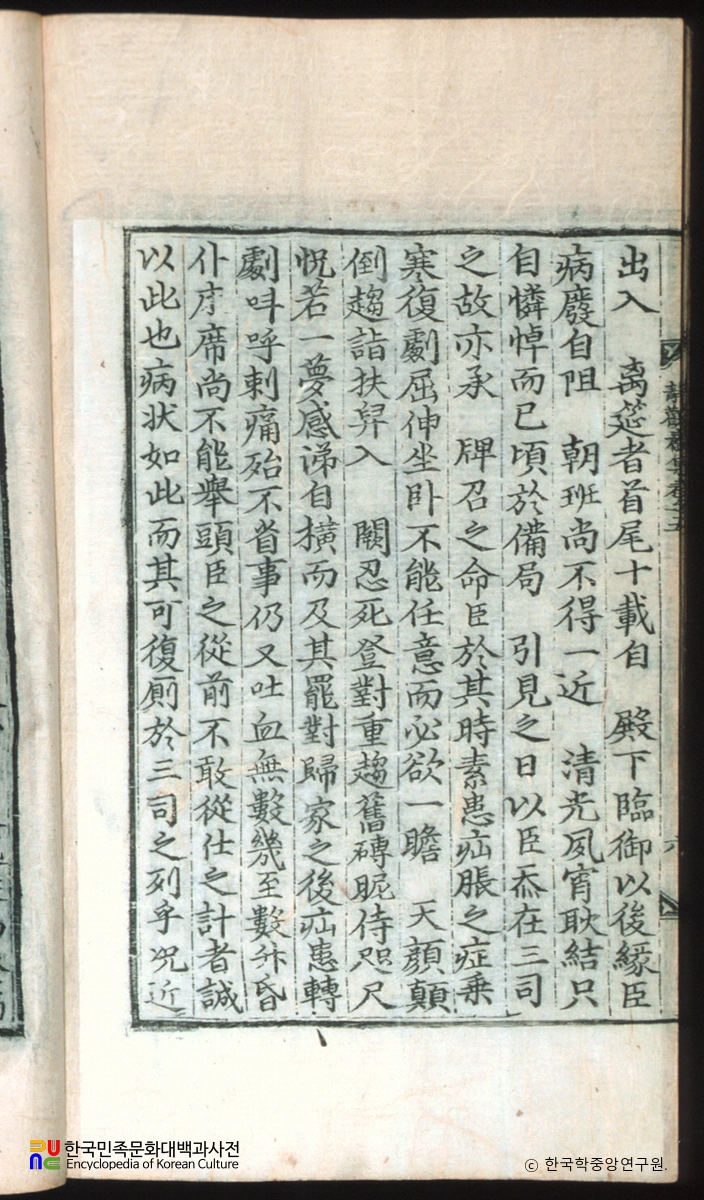 出入 离筵者首尾十載自 殿下臨御以後緣臣
病廢自阻 朝班尚不得一近 清光夙宵耿結只
自憐悼而已頃於備局 引見之日以臣忝在三司
之故亦承 牌召之命臣於其時素患疝脹之症乘
寒復劇屈伸坐卧不能任意而必欲一瞻 天顔顛
倒趨詣扶舁入 闕忍死登對重趨舊磚昵侍咫尺
怳若一夢感涕自撗而及其罷對歸家之後疝患轉
劇呌呼刺痛殆不省事仍又吐血無數幾至數升昏
仆床席尚不能舉頭臣之從前不敢從仕之計者誠
以此也病状如此而其可復厠於三司之列乎况近
靜觀齋集卷之五
六
한국민족문화대백과사전
Encyclopedia of Korean Culture
ⓒ 한국학중앙연구원.